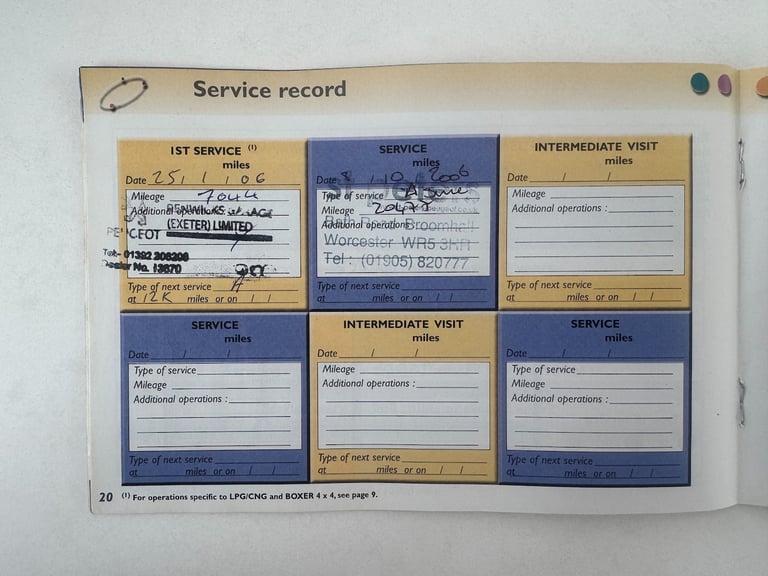 Service record
1ST SERVICE (1)
miles
Date 25 / 1 / 06
Mileage 7044
Additional operations
(EXETER) LIMITED
Tel:- 01392
Dealer No. 13670
Type of next service A
at 12K miles or on / /
SERVICE
miles
Date 8 / 10 2006
Type of service A
Mileage
Additional operations
Bath Road Broomhall
Worcester WR5 3HR
Tel : (01905) 820777
Type of next service
at miles or on / /
INTERMEDIATE VISIT
miles
Date / /
Mileage
Additional operations :
Type of next service
at miles or on / /
SERVICE
miles
Date / /
Type of service
Mileage
Additional operations :
Type of next service
at miles or on / /
INTERMEDIATE VISIT
miles
Date / /
Mileage
Additional operations :
Type of next service
at miles or on / /
SERVICE
miles
Date / /
Type of service
Mileage
Additional operations :
Type of next service
at miles or on / /
20 (1) For operations specific to LPG/CNG and BOXER 4 x 4, see page 9.